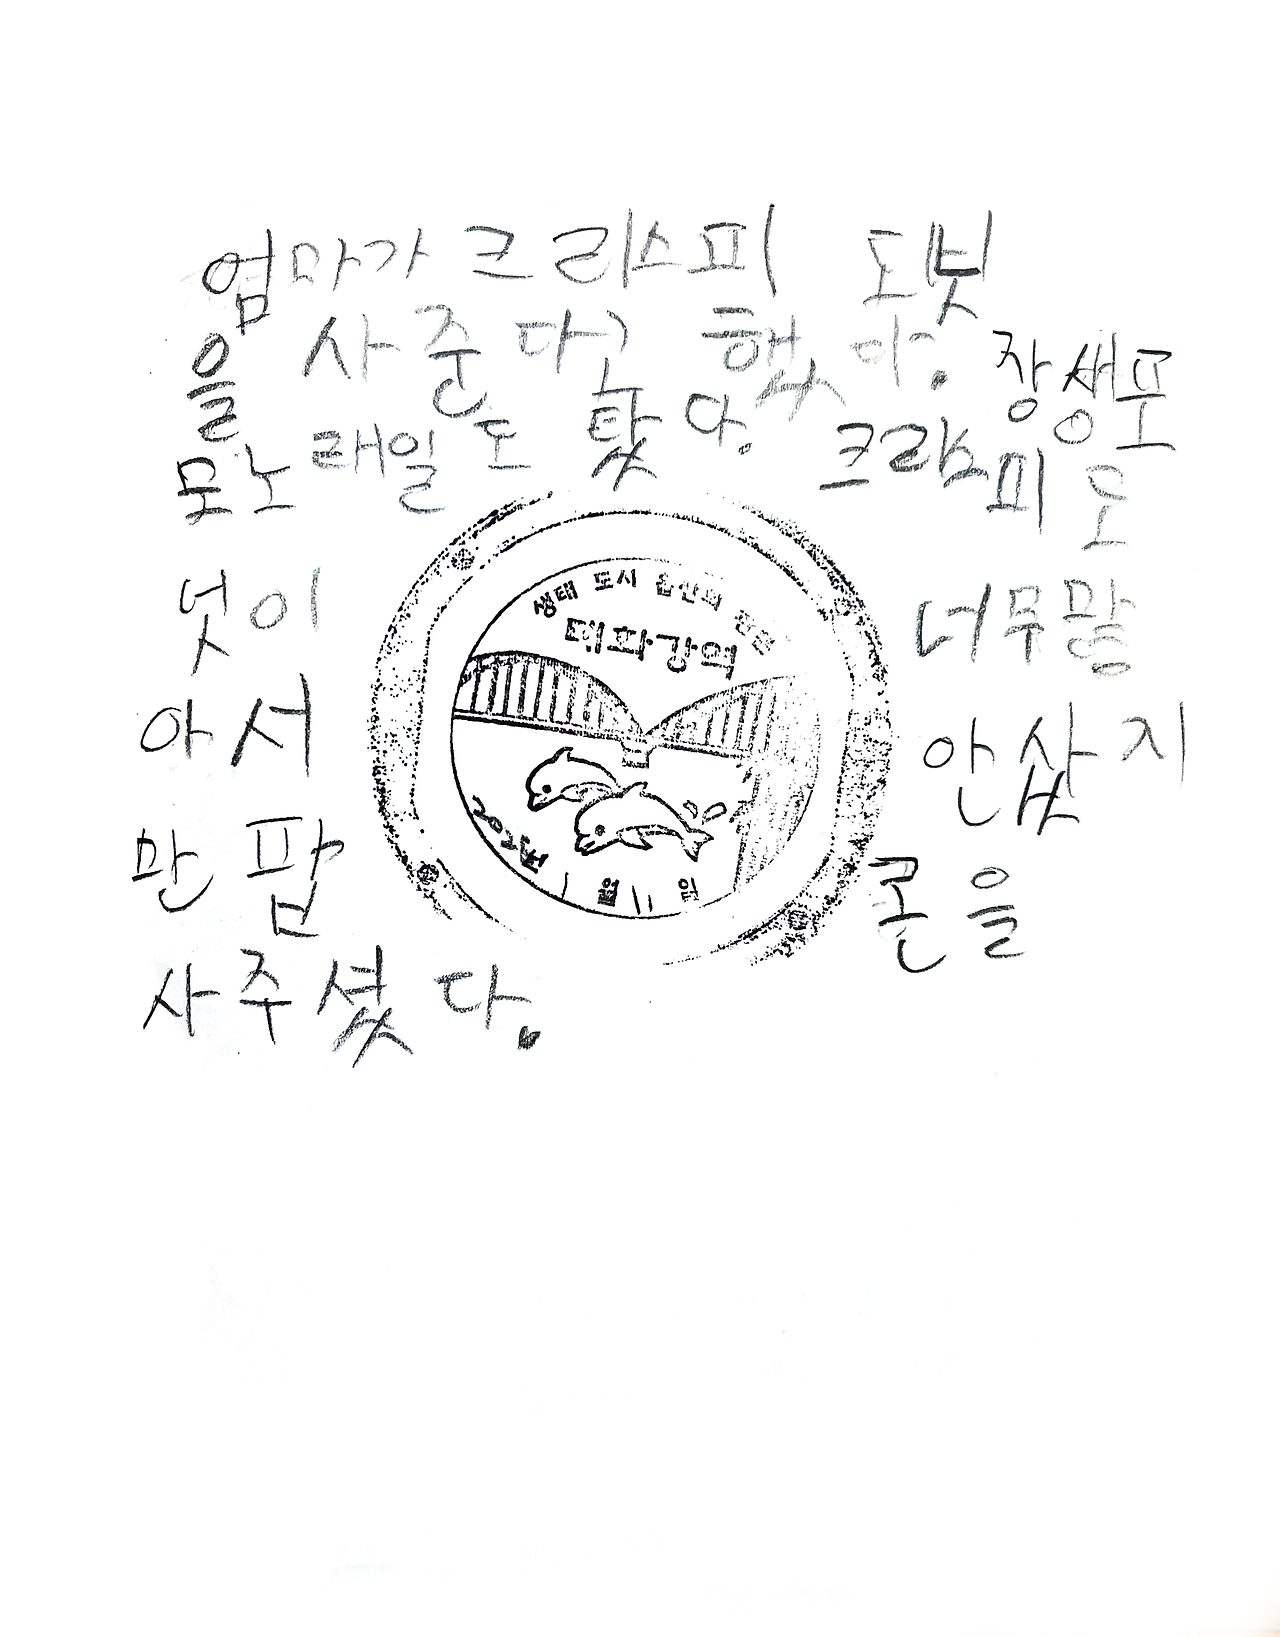 엄마가 크리스피 도넛
을 사준다고 했다. 장생포
모노래일도 탔다. 크리스피 도
넛이 너무많
아서 안샀지
만 팝콘을
사주셨다.
생태 도시 울산의 관문
태화강역
1월 11일